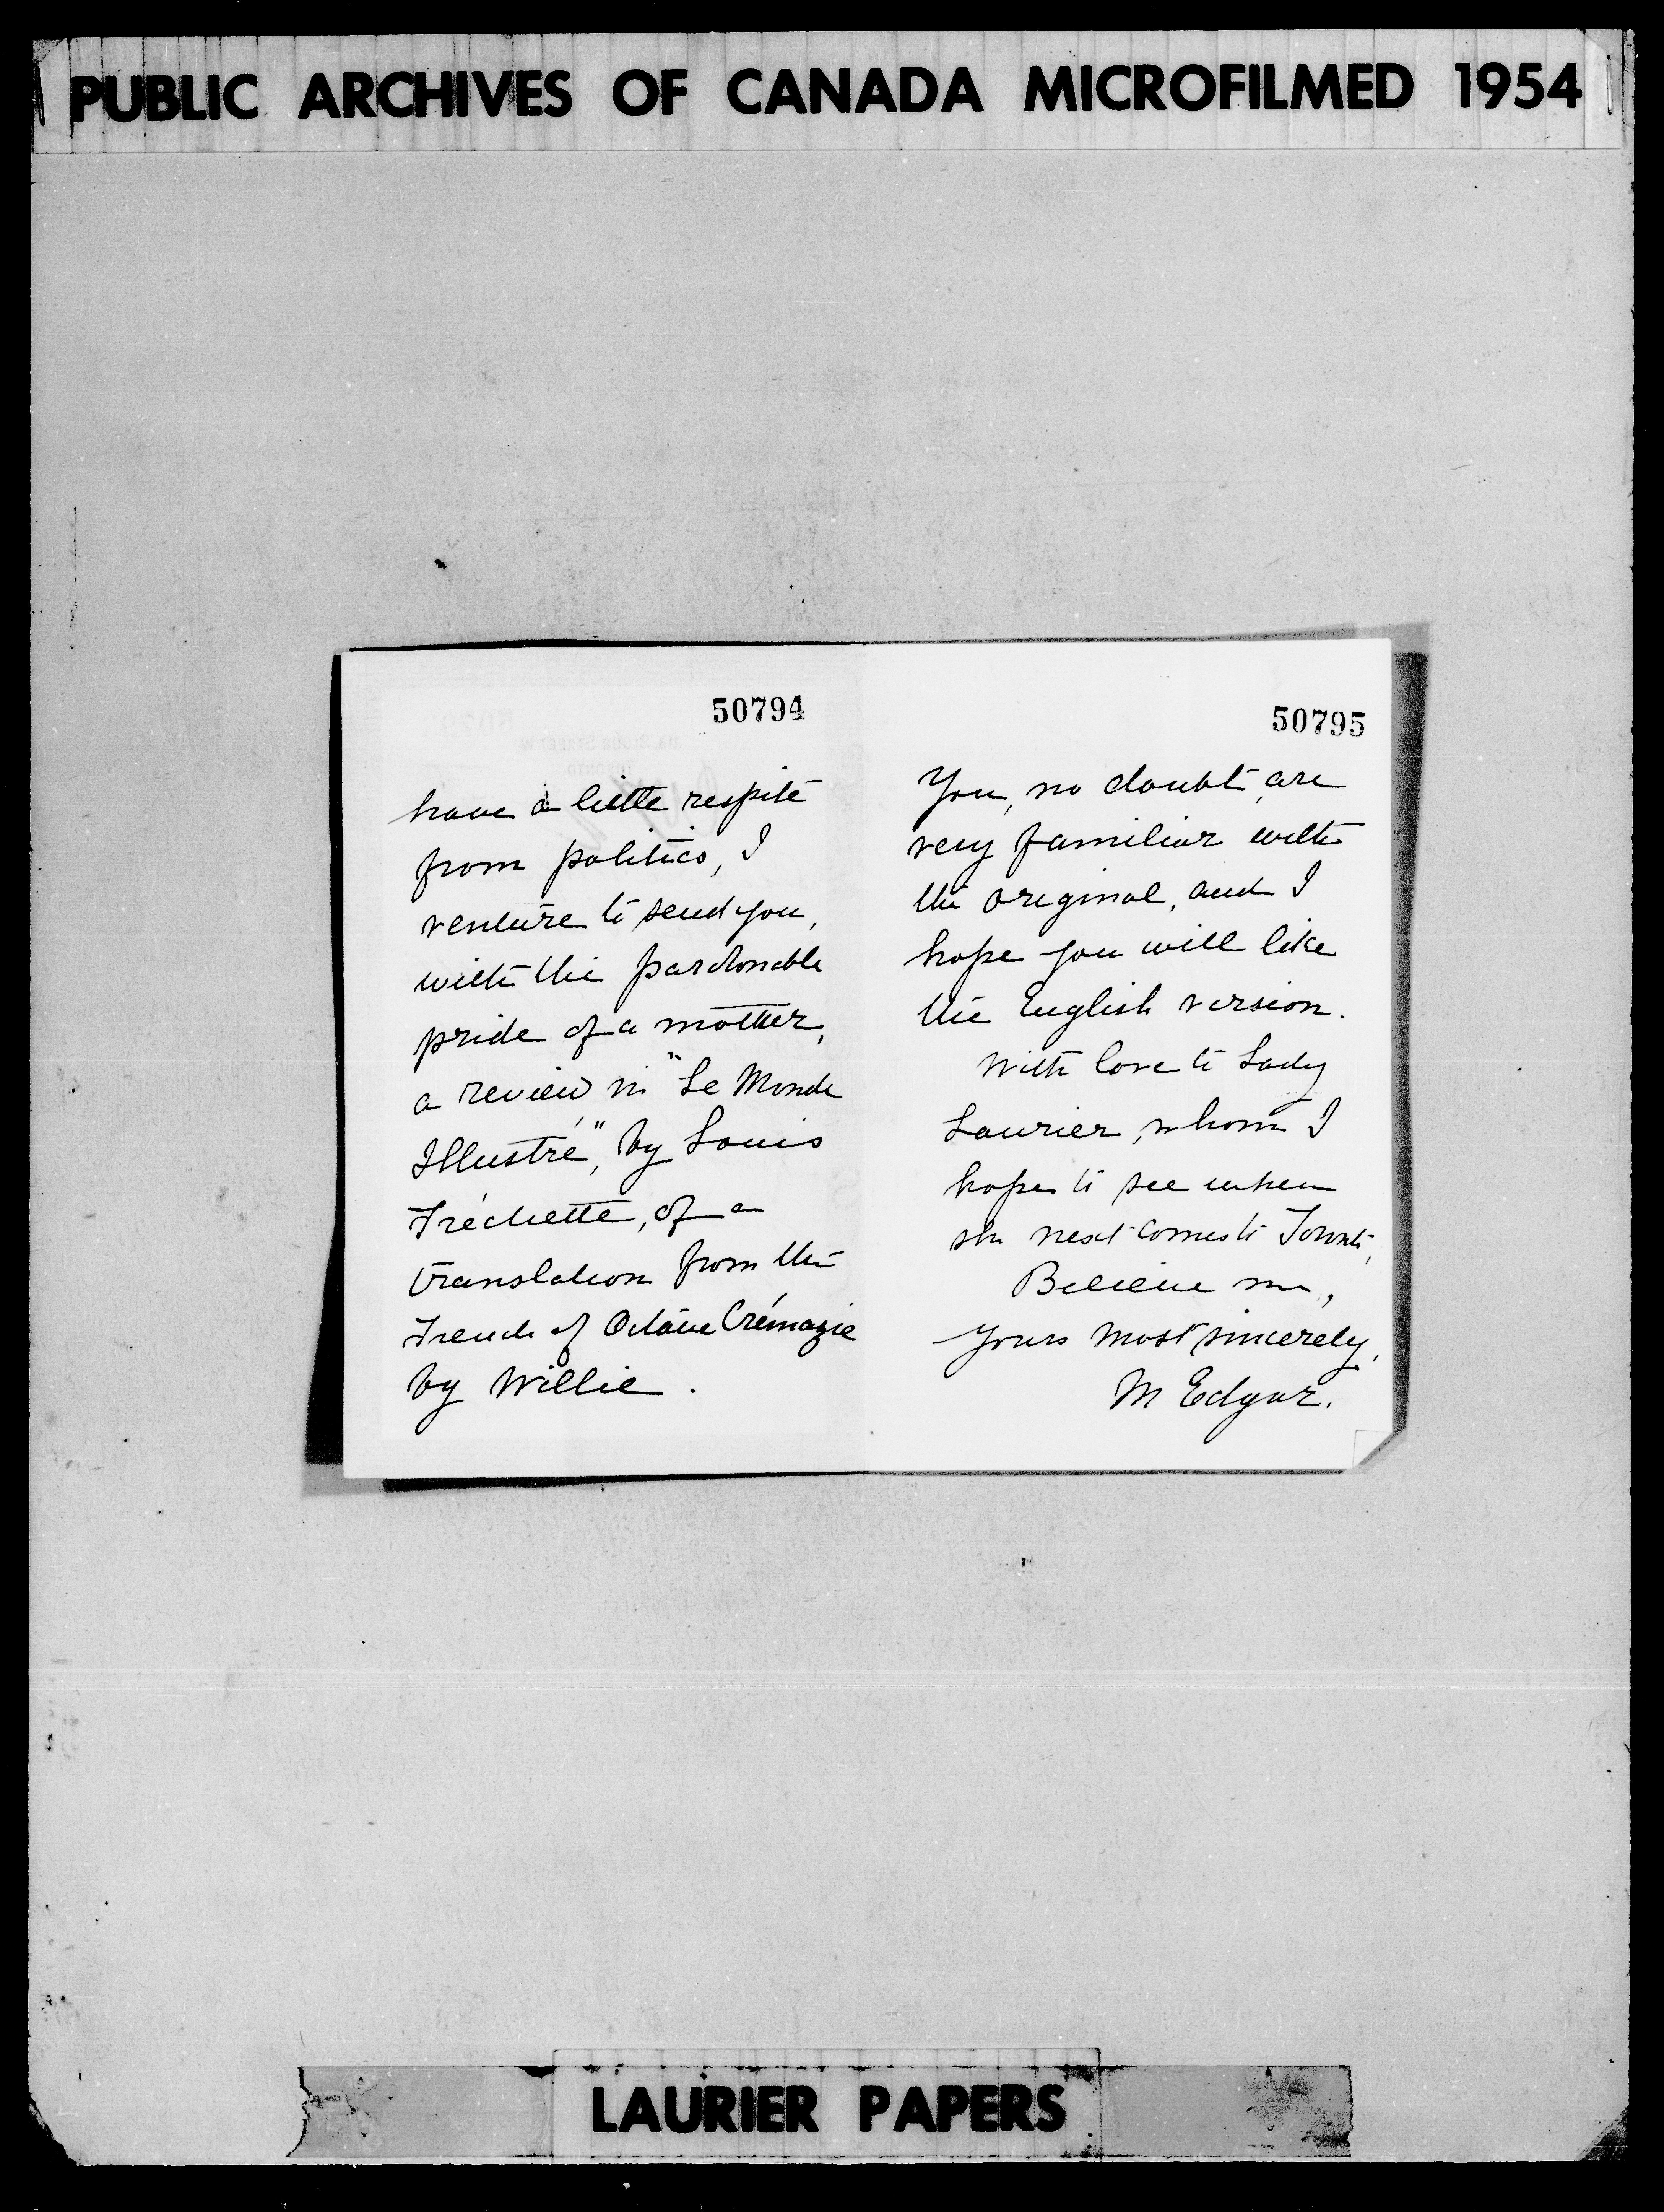 PUBLIC ARCHIVES OF CANADA MICROFILMED 1954
50794
have a little respite
from politics, I
venture to send you,
with the pardonable
pride of a mother,
a review in "Le Monde
Illustré", by Louis
Fréchette, of a
translation from the
French of Octave Crémazie
by Willie.
50795
You, no doubt, are
very familiar with
the original, and I
hope you will like
the English version.
With love to Lady
Laurier, whom I
hope to see when
she next comes to Toronto,
Believe me,
Yours most sincerely,
M Edgar.
LAURIER PAPERS